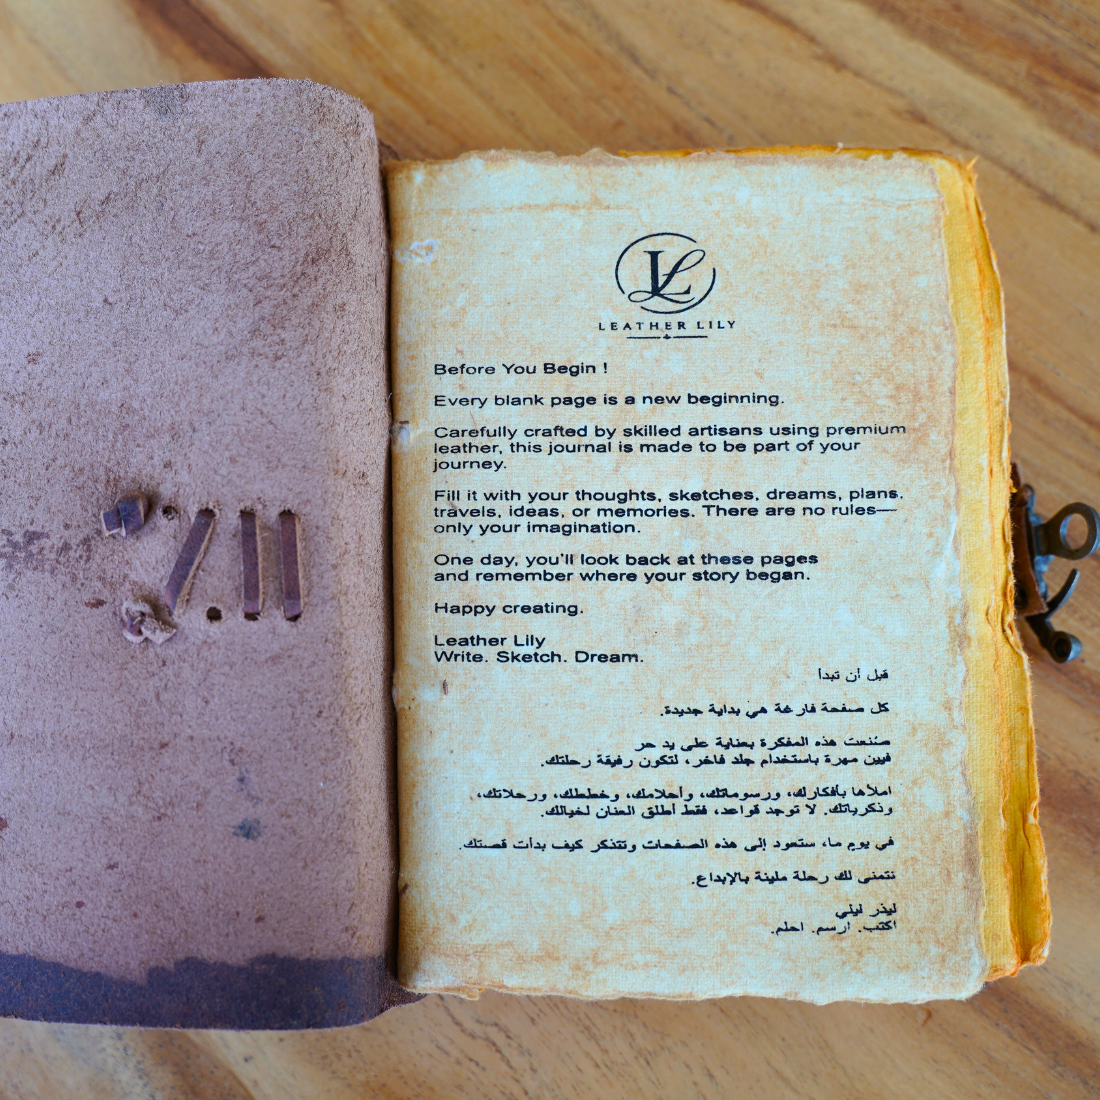 LL
LEATHER LILY
Before You Begin !
Every blank page is a new beginning.
Carefully crafted by skilled artisans using premium
leather, this journal is made to be part of your
journey.
Fill it with your thoughts, sketches, dreams, plans,
travels, ideas, or memories. There are no rules—
only your imagination.
One day, you'll look back at these pages
and remember where your story began.
Happy creating.
Leather Lily
Write. Sketch. Dream.
قبل أن تبدأ
كل صفحة فارغة هي بداية جديدة.
صُنعت هذه المفكرة بعناية على يد حر
فيين مهرة باستخدام جلد فاخر، لتكون رفيقة رحلتك.
املأها بأفكارك، ورسوماتك، وأحلامك، وخططك، ورحلاتك،
وذكرياتك. لا توجد قواعد، فقط أطلق العنان لخيالك.
في يوم ما، ستعود إلى هذه الصفحات وتتذكر كيف بدأت قصتك.
نتمنى لك رحلة مليئة بالإبداع.
ليذر ليلي
اكتب. ارسم. احلم.